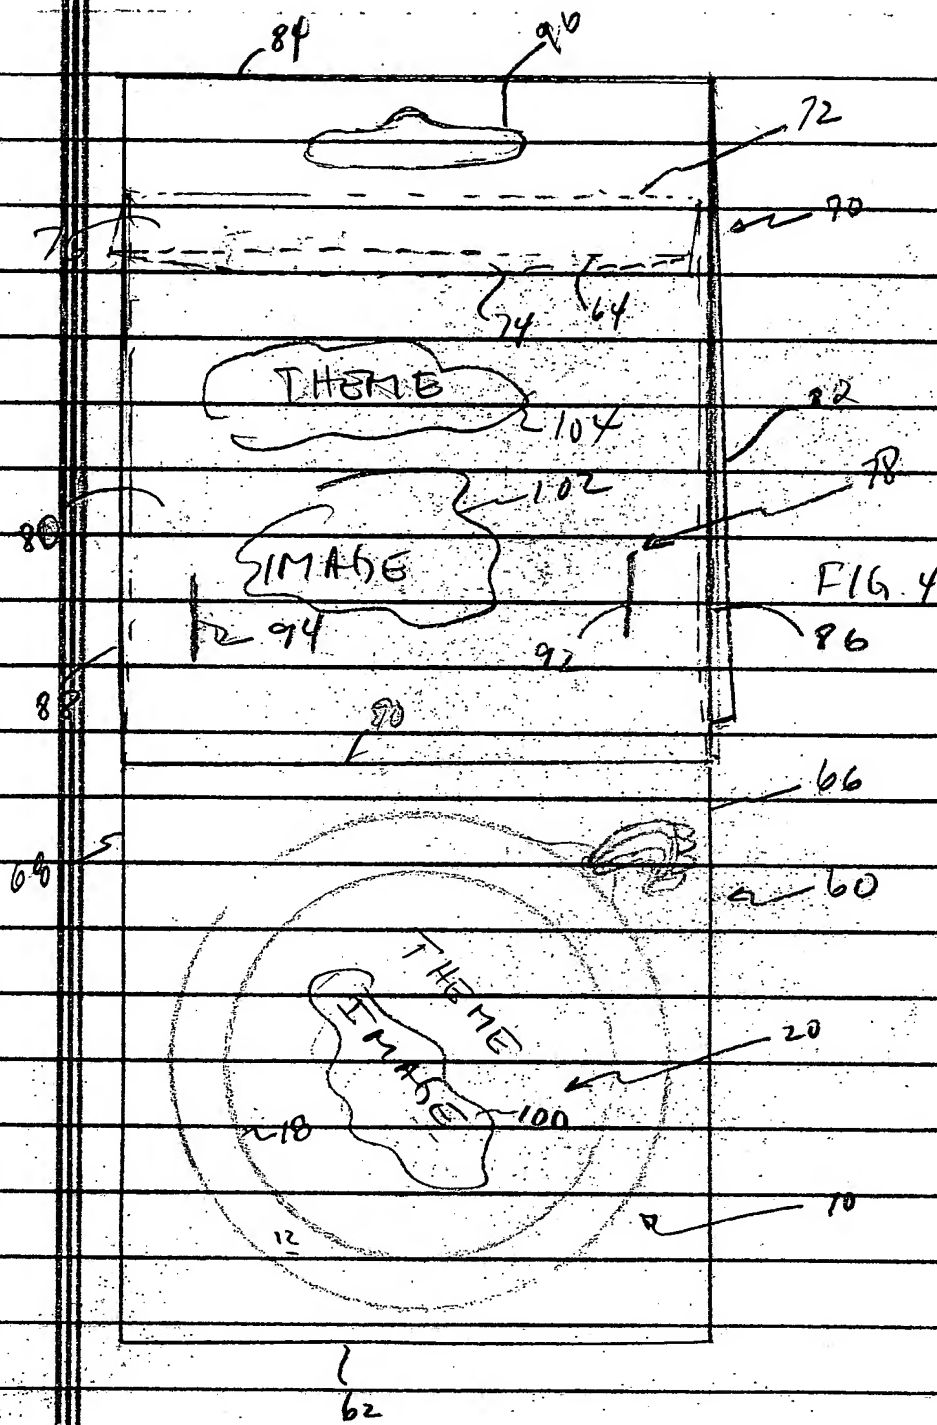 84
96
72
70
76
74
64
THEME
104
82
102
78
80
IMAGE
FIG. 4
94
92
86
88
90
66
68
60
THEME
IMAGE
20
100
18
10
12
62